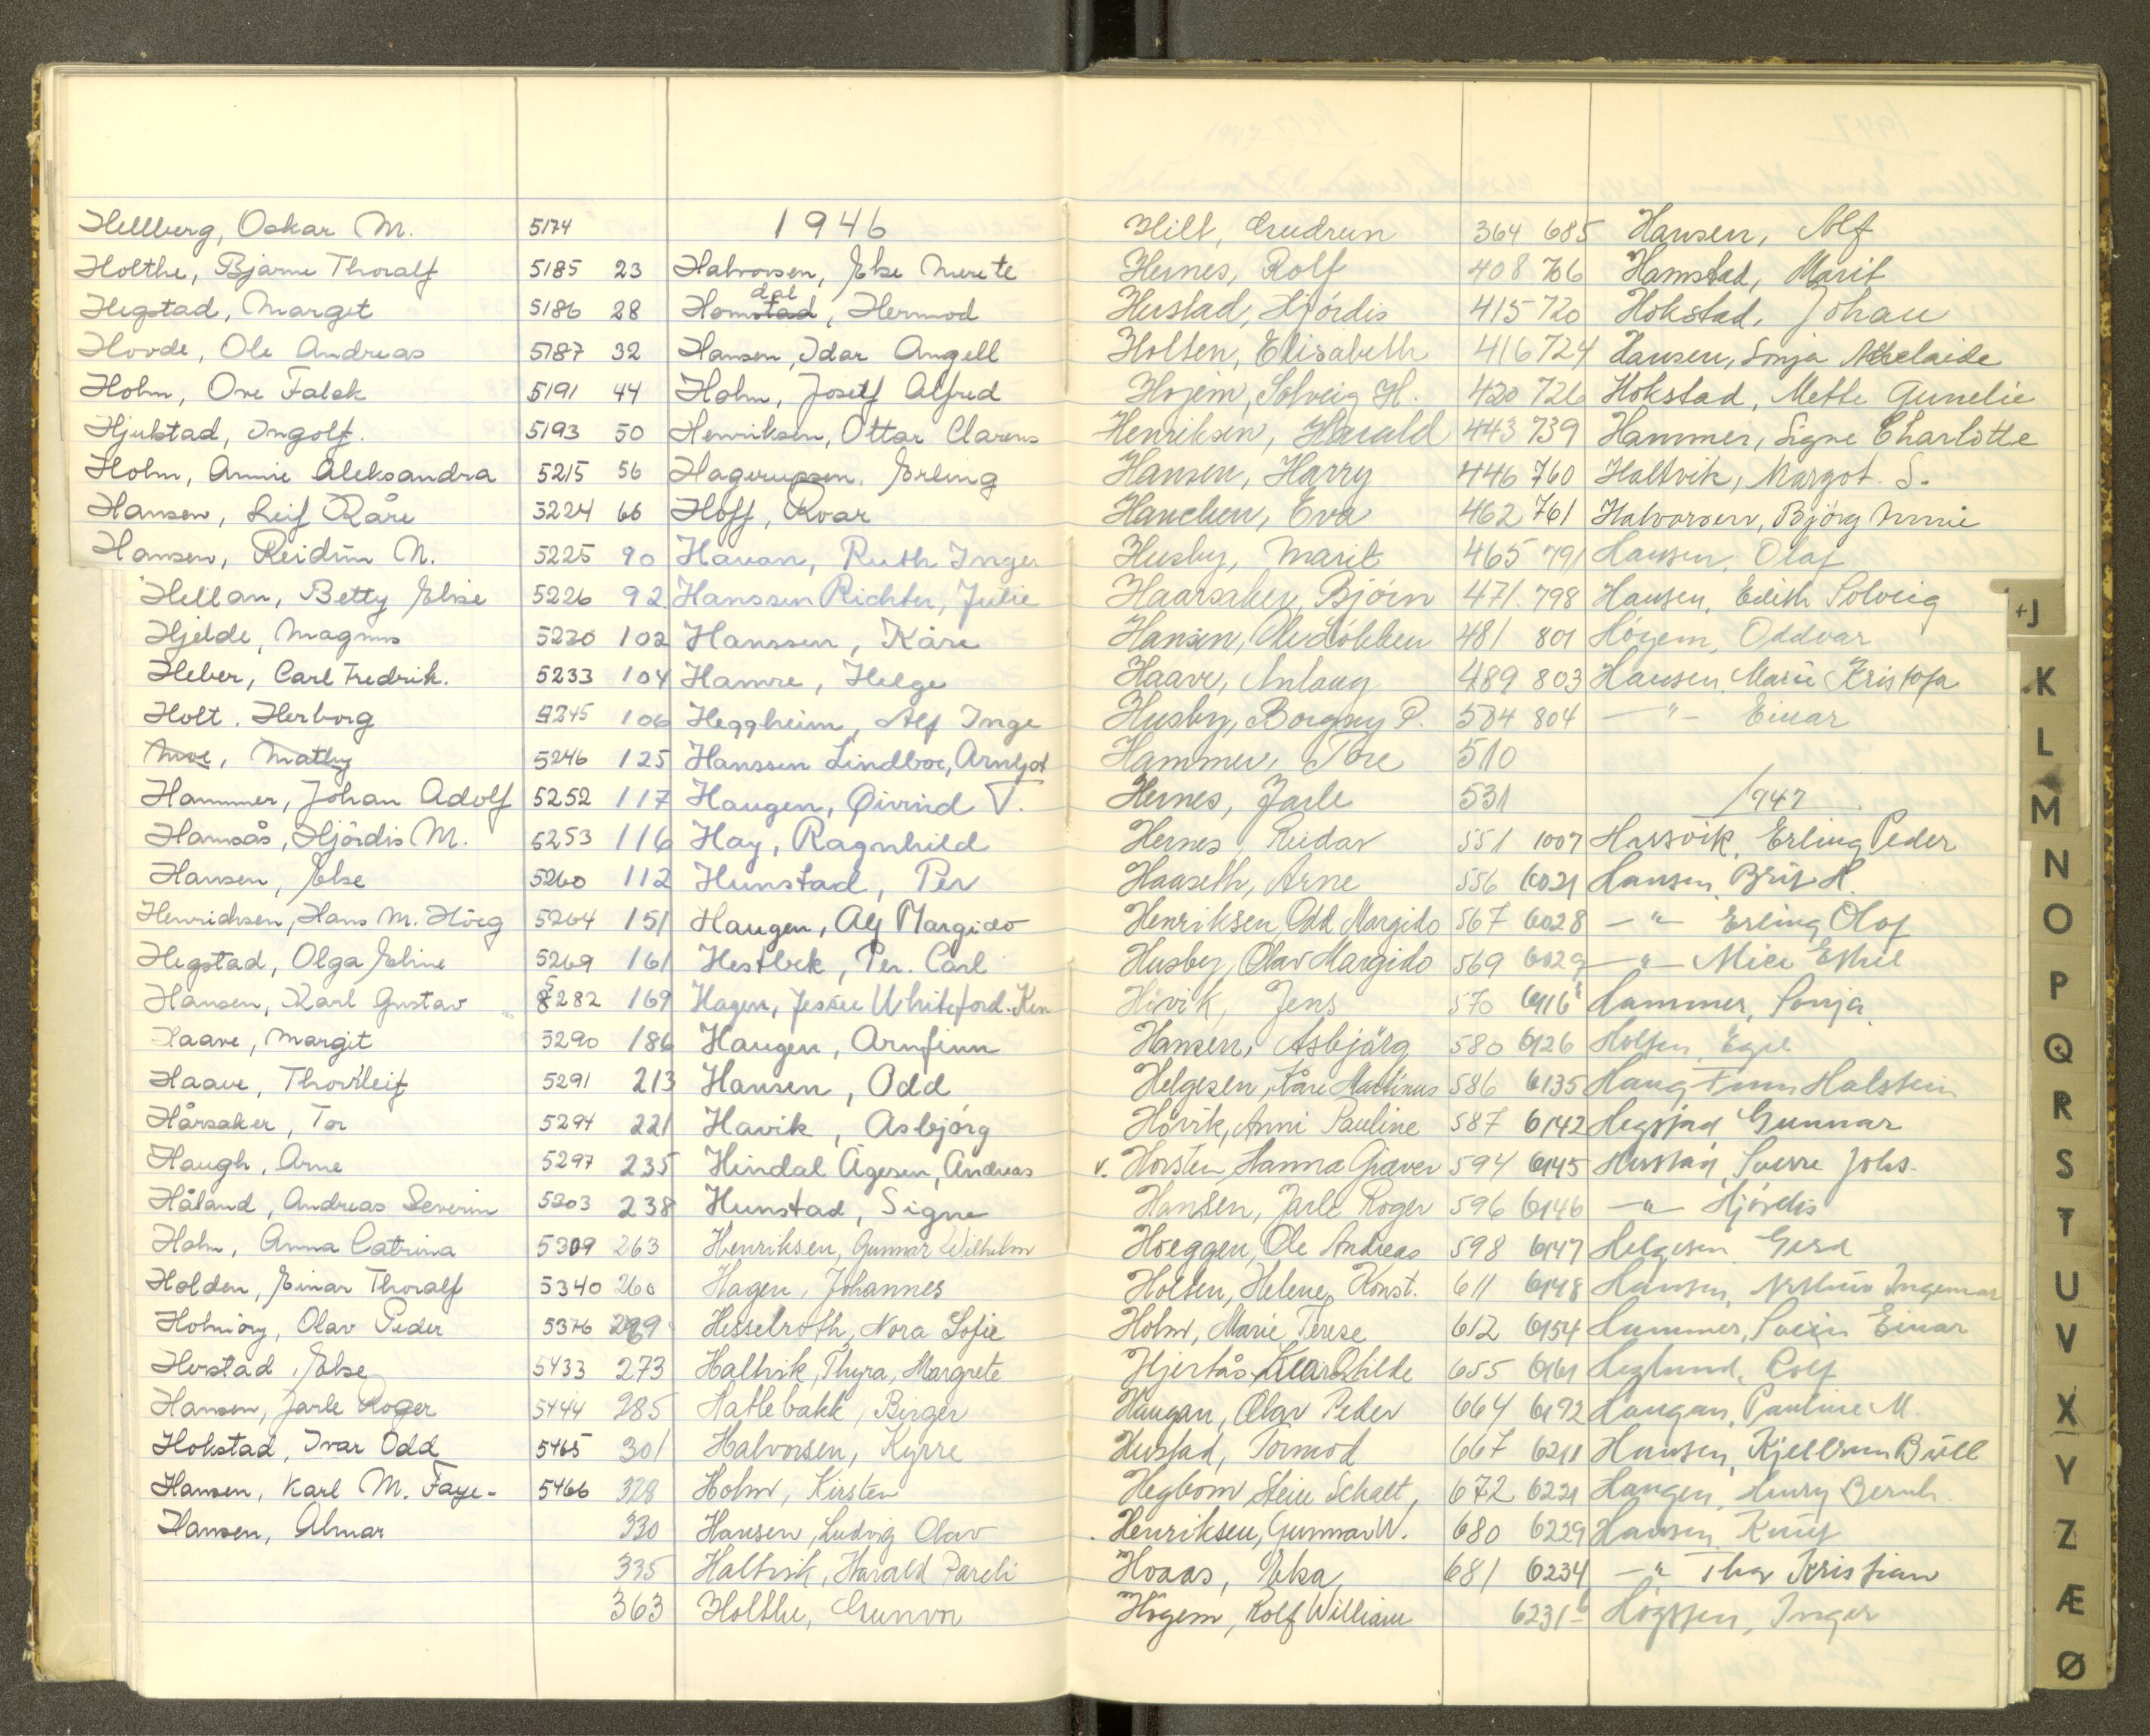 Hellberg, Oskar M. 5174
Holthe, Bjarne Thoralf 5185
Hegstad, Margit 5186
Hovde, Ole Andreas 5187
Holm, Ove Falck 5191
Hjulstad, Ingolf. 5193
Holm, Annie Aleksandra 5215
Hansen, Leif Kåre 5224
Hansen, Reidun N. 5225
Hellan, Betty Elise 5226
Hjelde, Magnus 5230
Heber, Carl Fredrik. 5233
Holt, Herborg 5245
Moe, Mathy 5246
Hammer, Johan Adolf 5252
Hamsås, Hjördis M. 5253
Hansen, Else 5260
Henrichsen, Hans M. Höeg 5264
Hegstad, Olga Eline 5269
Hansen, Karl Gustav 5282
Haave, Margit 5290
Haave, Thorleif 5291
Hårsaker, Tor 5294
Haugh, Arne 5297
Håland, Andreas Severin 5303
Holm, Anna Catrina 5309
Holden, Einar Thoralf 5340
Olav Peder 5376
Hovstad, Else 5433
Hansen, Jarle Roger 5444
Hokstad, Ivar Odd 5465
Hansen, Karl M. Faye- 5466
Hansen, Almar
1946
23 Halvorsen, Else Merete
28 Homstad dal, Hermod
32 Hansen, Idar Angell
44 Holm, Josef Alfred
50 Henriksen, Ottar Clarens
56 Hagerupsen, Erling
66 Hoff, Roar
90 Havan, Ruth Inger
92 Hanssen Richter, Julie
102 Hanssen, Kåre
104 Hamre, Helge
106 Heggheim, Alf Inge
125 Hanssen Lindboe, Arnljot
117 Haugen, Øivind T.
116 Hay, Ragnhild
112 Hunstad, Per
151 Haugen, Alf Margido
161 Hestbek, Per. Carl
169 Hagen, Jessie Whiteford. Ken
186 Haugen, Arnfinn
213 Hansen, Odd
221 Havik, Asbjörg
235 Hindal Ågesen, Andreas
238 Hunstad, Signe
263 Henriksen, Gunnar Wilhelm
260 Hagen, Johannes
269 Hesselroth, Nora Sofie
273 Haltvik, Thyra, Margrete
285 Hatlebakk, Birger
301 Halvorsen, Kyrre
328 Holm, Kirsten
330 Hansen, Ludvig Olav
335 Haltvik, Harald Pareli
363 Holthe, Gunvor
Hilt, Gudrun 364
Hernes, Rolf 408
Hustad, Hjördis 415
Holten, Elisabeth 416
Hojem, Solveig H. 420
Henriksen, Harald 443
Hansen, Harry 446
Hanchen, Eva 462
Husby, Marit 465
Haarsaker, Bjørn 471
Hansen, Ole Lökken 481
Haave, Anlaug 489
Husby, Borgny P. 504
Hammer, Tore 510
Hernes, Jarle 531
Hernes, Reidar 551
Haaseth, Arne 556
Henriksen, Odd Margido 567
Husby, Olav Margido 569
Hivik, Jens 570
Hansen, Asbjörg 580
Helgesen, Kåre Martinus 586
Håvik, Anni Pauline 587
v. Horsten, Hanna Gjæver 594
Hansen, Jarle Roger 596
Hoeggen, Ole Andreas 598
Holsen, Helene, Konst. 611
Holm, Marie Terese 612
Hjertås 655
Haugan, Olav Peder 664
Hustad, Tormod 667
Hegbom, Stein Schalt, 672
Henriksen, Gunnar W. 680
Hoaas, Elsa 681
Högem, Rolf William
685 Hansen, Alf
706 Hamstad, Marit
720 Hokstad, Johan
724 Hansen, Sonja Adelaide
726 Hokstad, Mette Gunelie
739 Hammer, Signe Charlotte
760 Haltvik, Margot. S.
761 Halvorsen, Björg Minnie
791 Hansen, Olaf
798 Hansen, Edith Solveig
801 Högem, Oddvar
803 Hansen, Marie Kristofa
804 —"— Einar
1947
1007 Hassvik, Erling Peder
6021 Hansen, Brit H.
6028 —"— Erling Olof
6029 —"—
6116 Hammer, Sonja
6126 Holten, Egil
6135 Haug Finn Halstein
6142 Hegstad Gunnar
6145 Hustad, Sverre Johs.
6146 —"— Hjördis
6147 Helgesen Gerd
6148 Hansen, Ingemar
6154 Hammer, Svein Einar
6161 Heglund, Rolf
6192 Haugan, Pauline M.
6211 Hansen, Kjellrun Bull
6221 Haugen,
6229 Hansen, Knut
6234 —"— Thor Kristian
6231 Inger
+J
K
L
M
N
O
P
Q
R
S
T
U
V
X
Y
Z
Æ
Ø